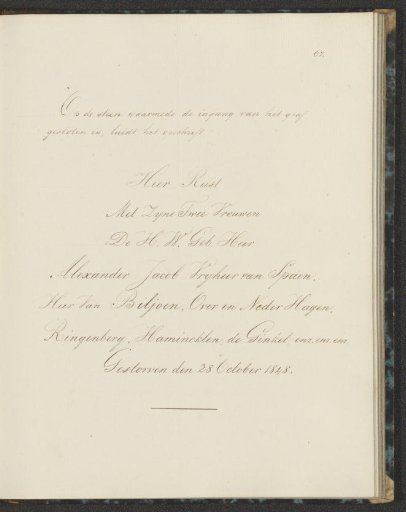 67.
Op de steen waarmede de ingang van het graf
gesloten is, luidt het opschrift
Hier Rust
Met Zyne Twee Vrouwen
De H. W. Geb. Heer
Alexander Jacob Vryheer van Spaen.
Heer Van Biljoen, Over en Neder Hagen,
Ringenberg, Haminckeln, de Ginkel enz. enz. enz
Gestorven den 28 October 1848.